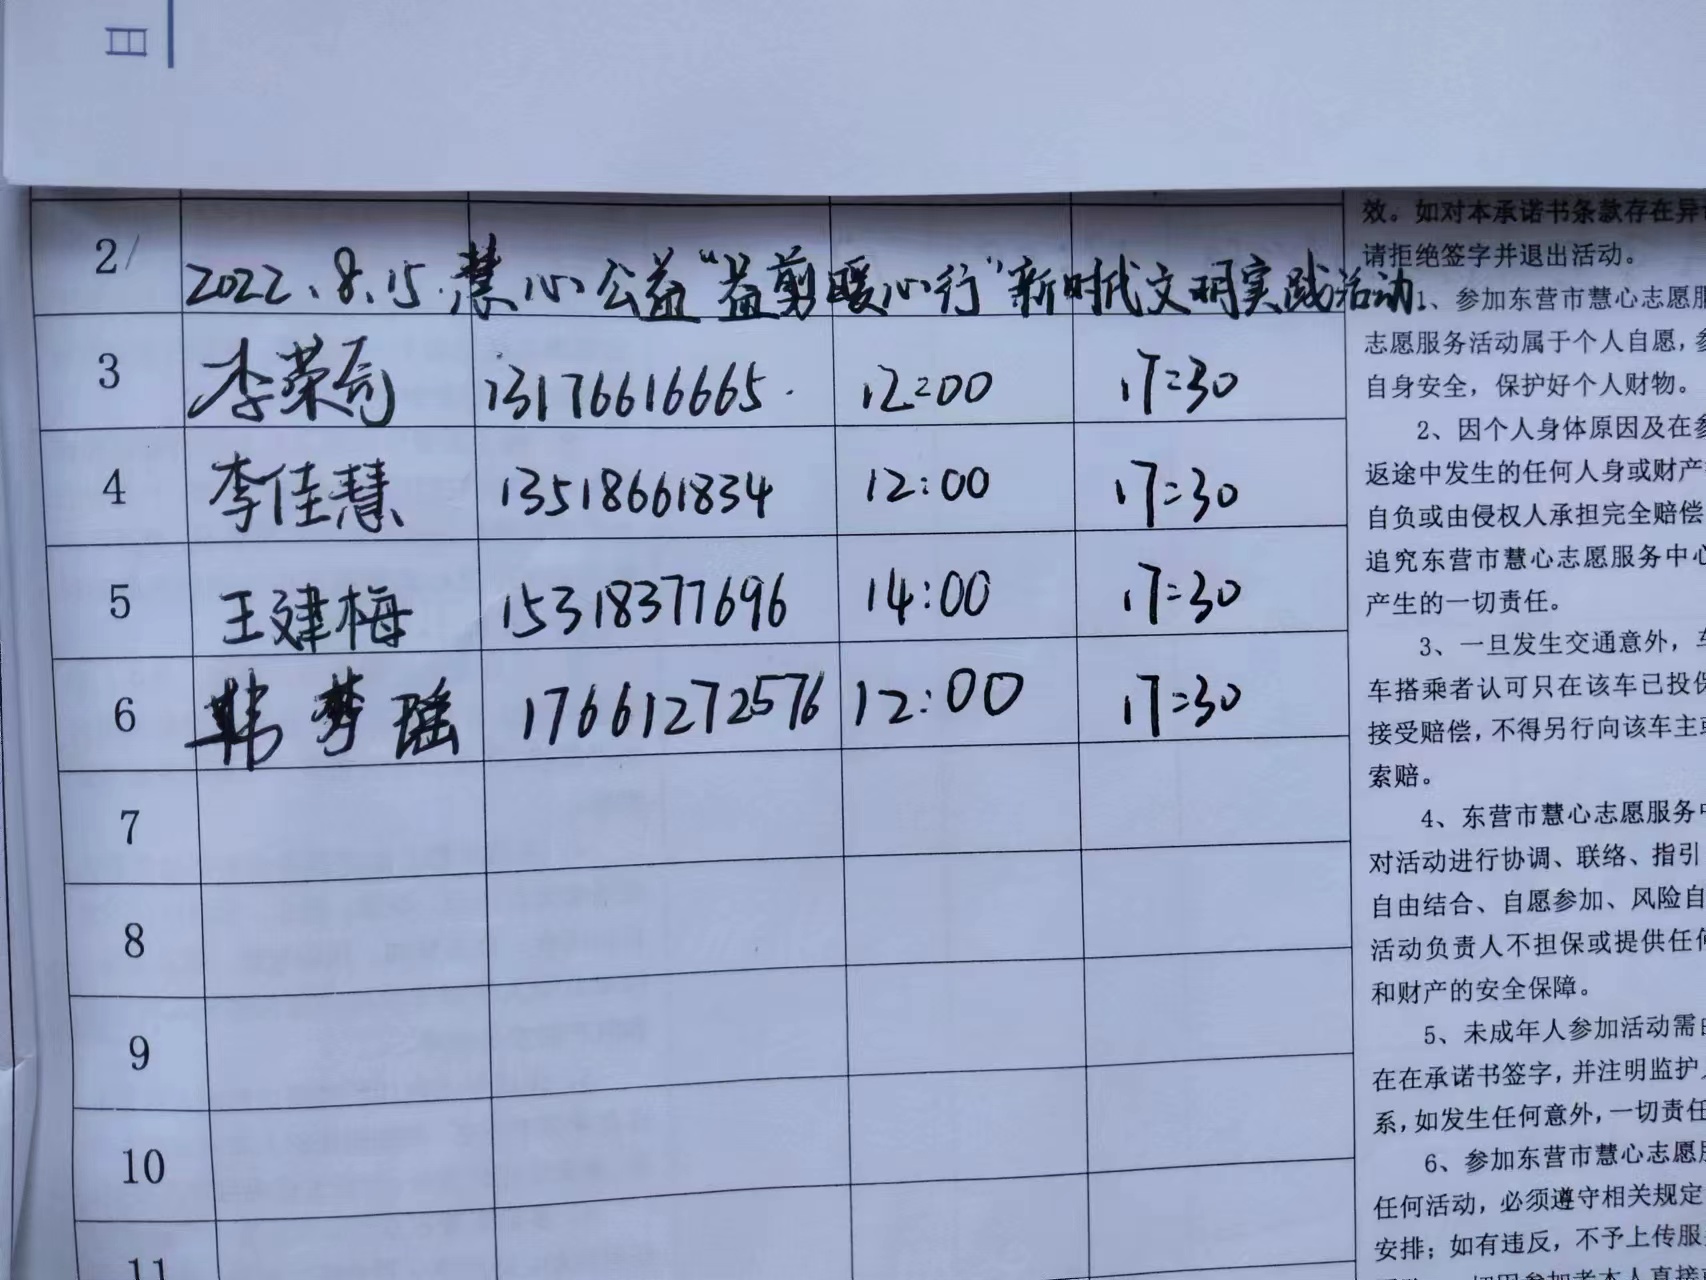 日
2 2022.8.15.慧心公益“益剪暖心行”新时代文明实践活动
3 李荣 13176616665. 12:00 17:30
4 李佳慧 13518661834 12:00 17:30
5 王建梅 15318377696 14:00 17:30
6 韩梦瑶 17661272576 12:00 17:30
7
8
9
10
11
效。如对本承诺书条款存在异
请拒绝签字并退出活动。
1、参加东营市慧心志愿服
志愿服务活动属于个人自愿，参
自身安全，保护好个人财物。
2、因个人身体原因及在参
返途中发生的任何人身或财产
自负或由侵权人承担完全赔偿
追究东营市慧心志愿服务中心
产生的一切责任。
3、一旦发生交通意外，车
车搭乘者认可只在该车已投保
接受赔偿，不得另行向该车主或
索赔。
4、东营市慧心志愿服务中
对活动进行协调、联络、指引
自由结合、自愿参加、风险自
活动负责人不担保或提供任何
和财产的安全保障。
5、未成年人参加活动需由
在在承诺书签字，并注明监护人
系，如发生任何意外，一切责任
6、参加东营市慧心志愿服
任何活动，必须遵守相关规定
安排；如有违反，不予上传服